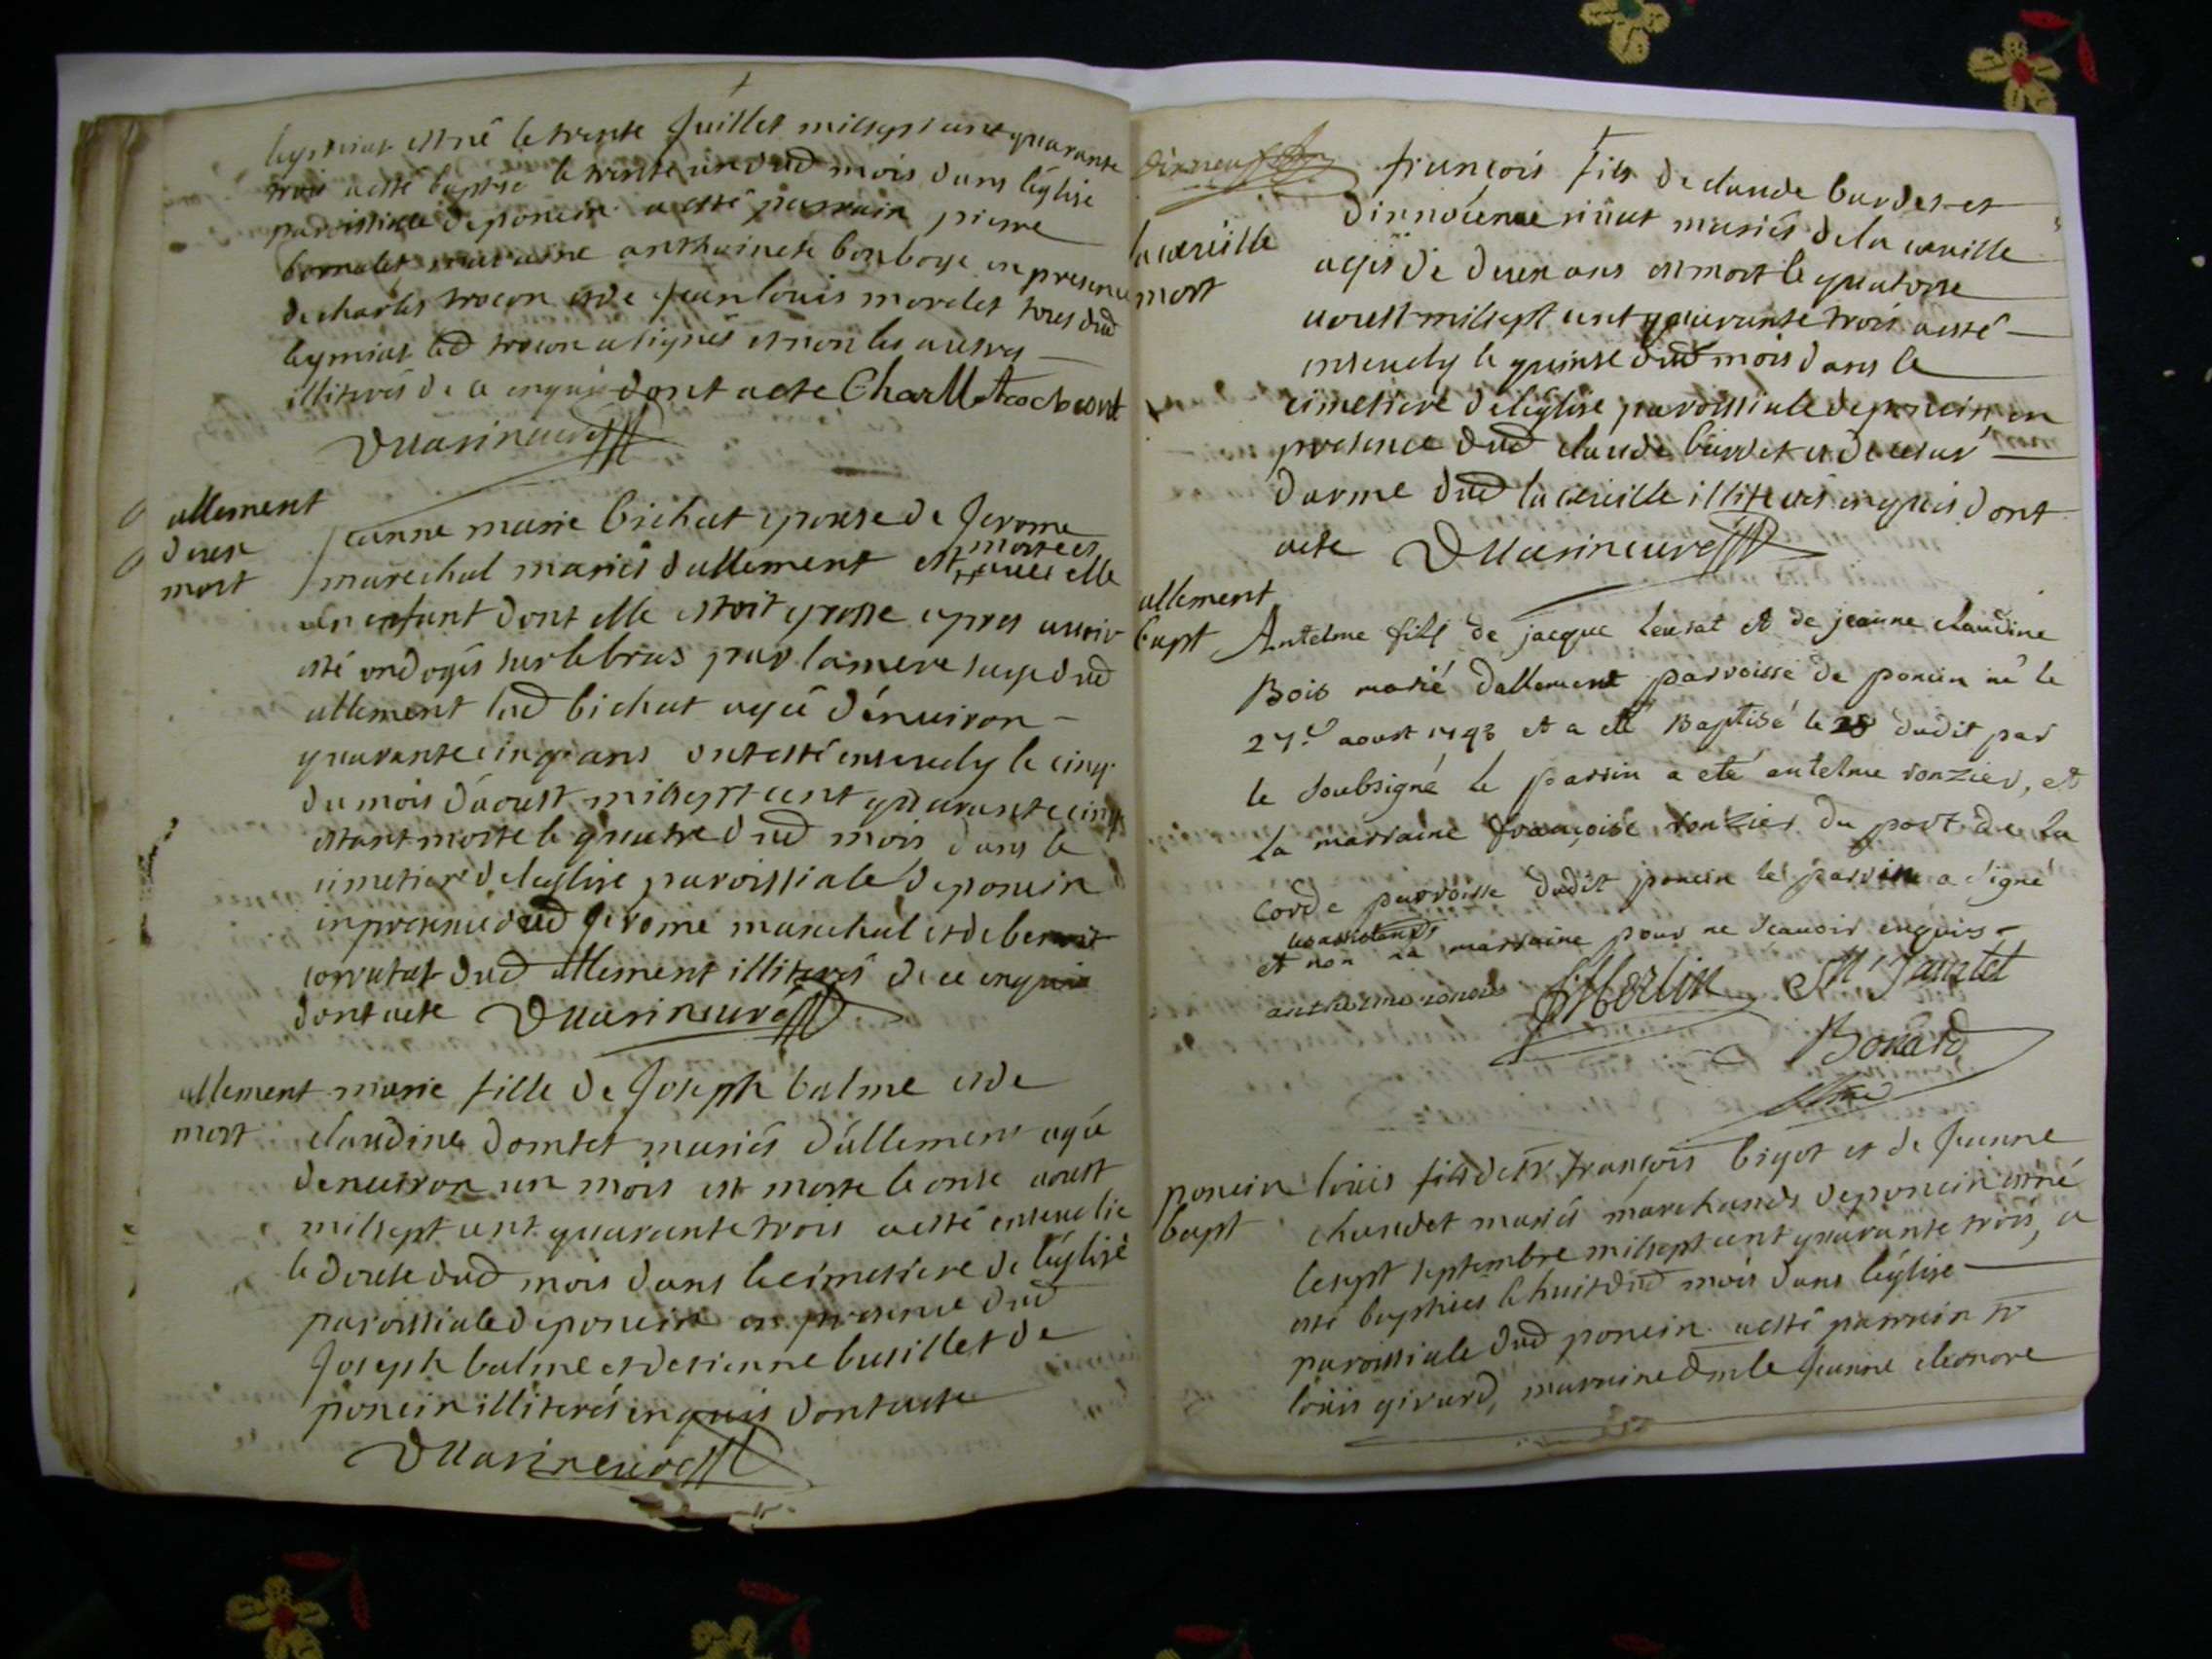 leymiat est né le trente Juillet mil sept cent quarante
trois a esté baptisé le trente un dud mois dans léglise
paroissialle de poncin a esté parrain pierre
bornalet maraine anthoinete bonboye en presence
de charles trocon et de Jean louis morelet tous dud
leymiat led trocon a signés et non les autres
illiterés de ce enquis dont acte Charll
Duasincuré
allement
deux
mort
Jeanne marie bichat epouse de Jerome
marechal mariés dallement est morte et avec elle
un enfant dont elle estoit grosse apres auoir
esté ondoyés sur le bras par la mere sage dud
allement lad bichat agée dénuiron
quarante cinq ans ont esté enseuely le cinq
du mois daoust mil sept cent quarante cinq
estant morte le quatre dud mois dans le
cimetiere de leglise paroissiale de poncin
en presence dud Jerome marechal et de benoit
dud allement illiterés de ce enquis
dont acte Duasincuré
allement
mort
marie fille de Joseph balme et de
claudine domtet mariés dállement agée
denuiron un mois est morte le onse aoust
mil sept cent quarante trois a esté enseuelie
le douse dud mois dans le cimetiere de léglise
paroissiale de poncin en presence dud
Joseph balme et de tienne busillet de
poncin illiterés enquis dont acte
Duasincuré
la cueille
mort
françois fils de claude burdet et
dinnocence riuat mariés de la cueille
agés de deux ans est mort le quatorse
aoust mil sept cent quarante trois a esté
enseuely le quinse dud mois dans le
cimetiere de léglise paroissiale de poncin en
presence dud claude burdet et de cesar
darme dud la cueille illiterés enquis dont
acte Duasincuré
allement
bapt
Antelme fils de jacque leusat et de jeanne claudine
Bois marié dallement parroisse de poncin né le
27e aoust 1743 et a eté Baptisé le 28 dudit par
le soubsigné le parrin a eté antelme ronzier, et
la marraine françoise ronzier du port de la
Corde parroisse dudit poncin le parrin a signé
les assistants
et non la marraine pour ne scauoir enquis
anthelme Merlin
Bonard
poncin
bapt
loüis fils de sr françois bigot et de Jeanne
chaudet mariés marchands de poncin est né
le sept septembre mil sept cent quarante trois, a
esté baptisés le huit dud mois dans léglise
paroissiale dud poncin a esté parrain sr
loüis girard, maraine dmle Jeanne eleonore